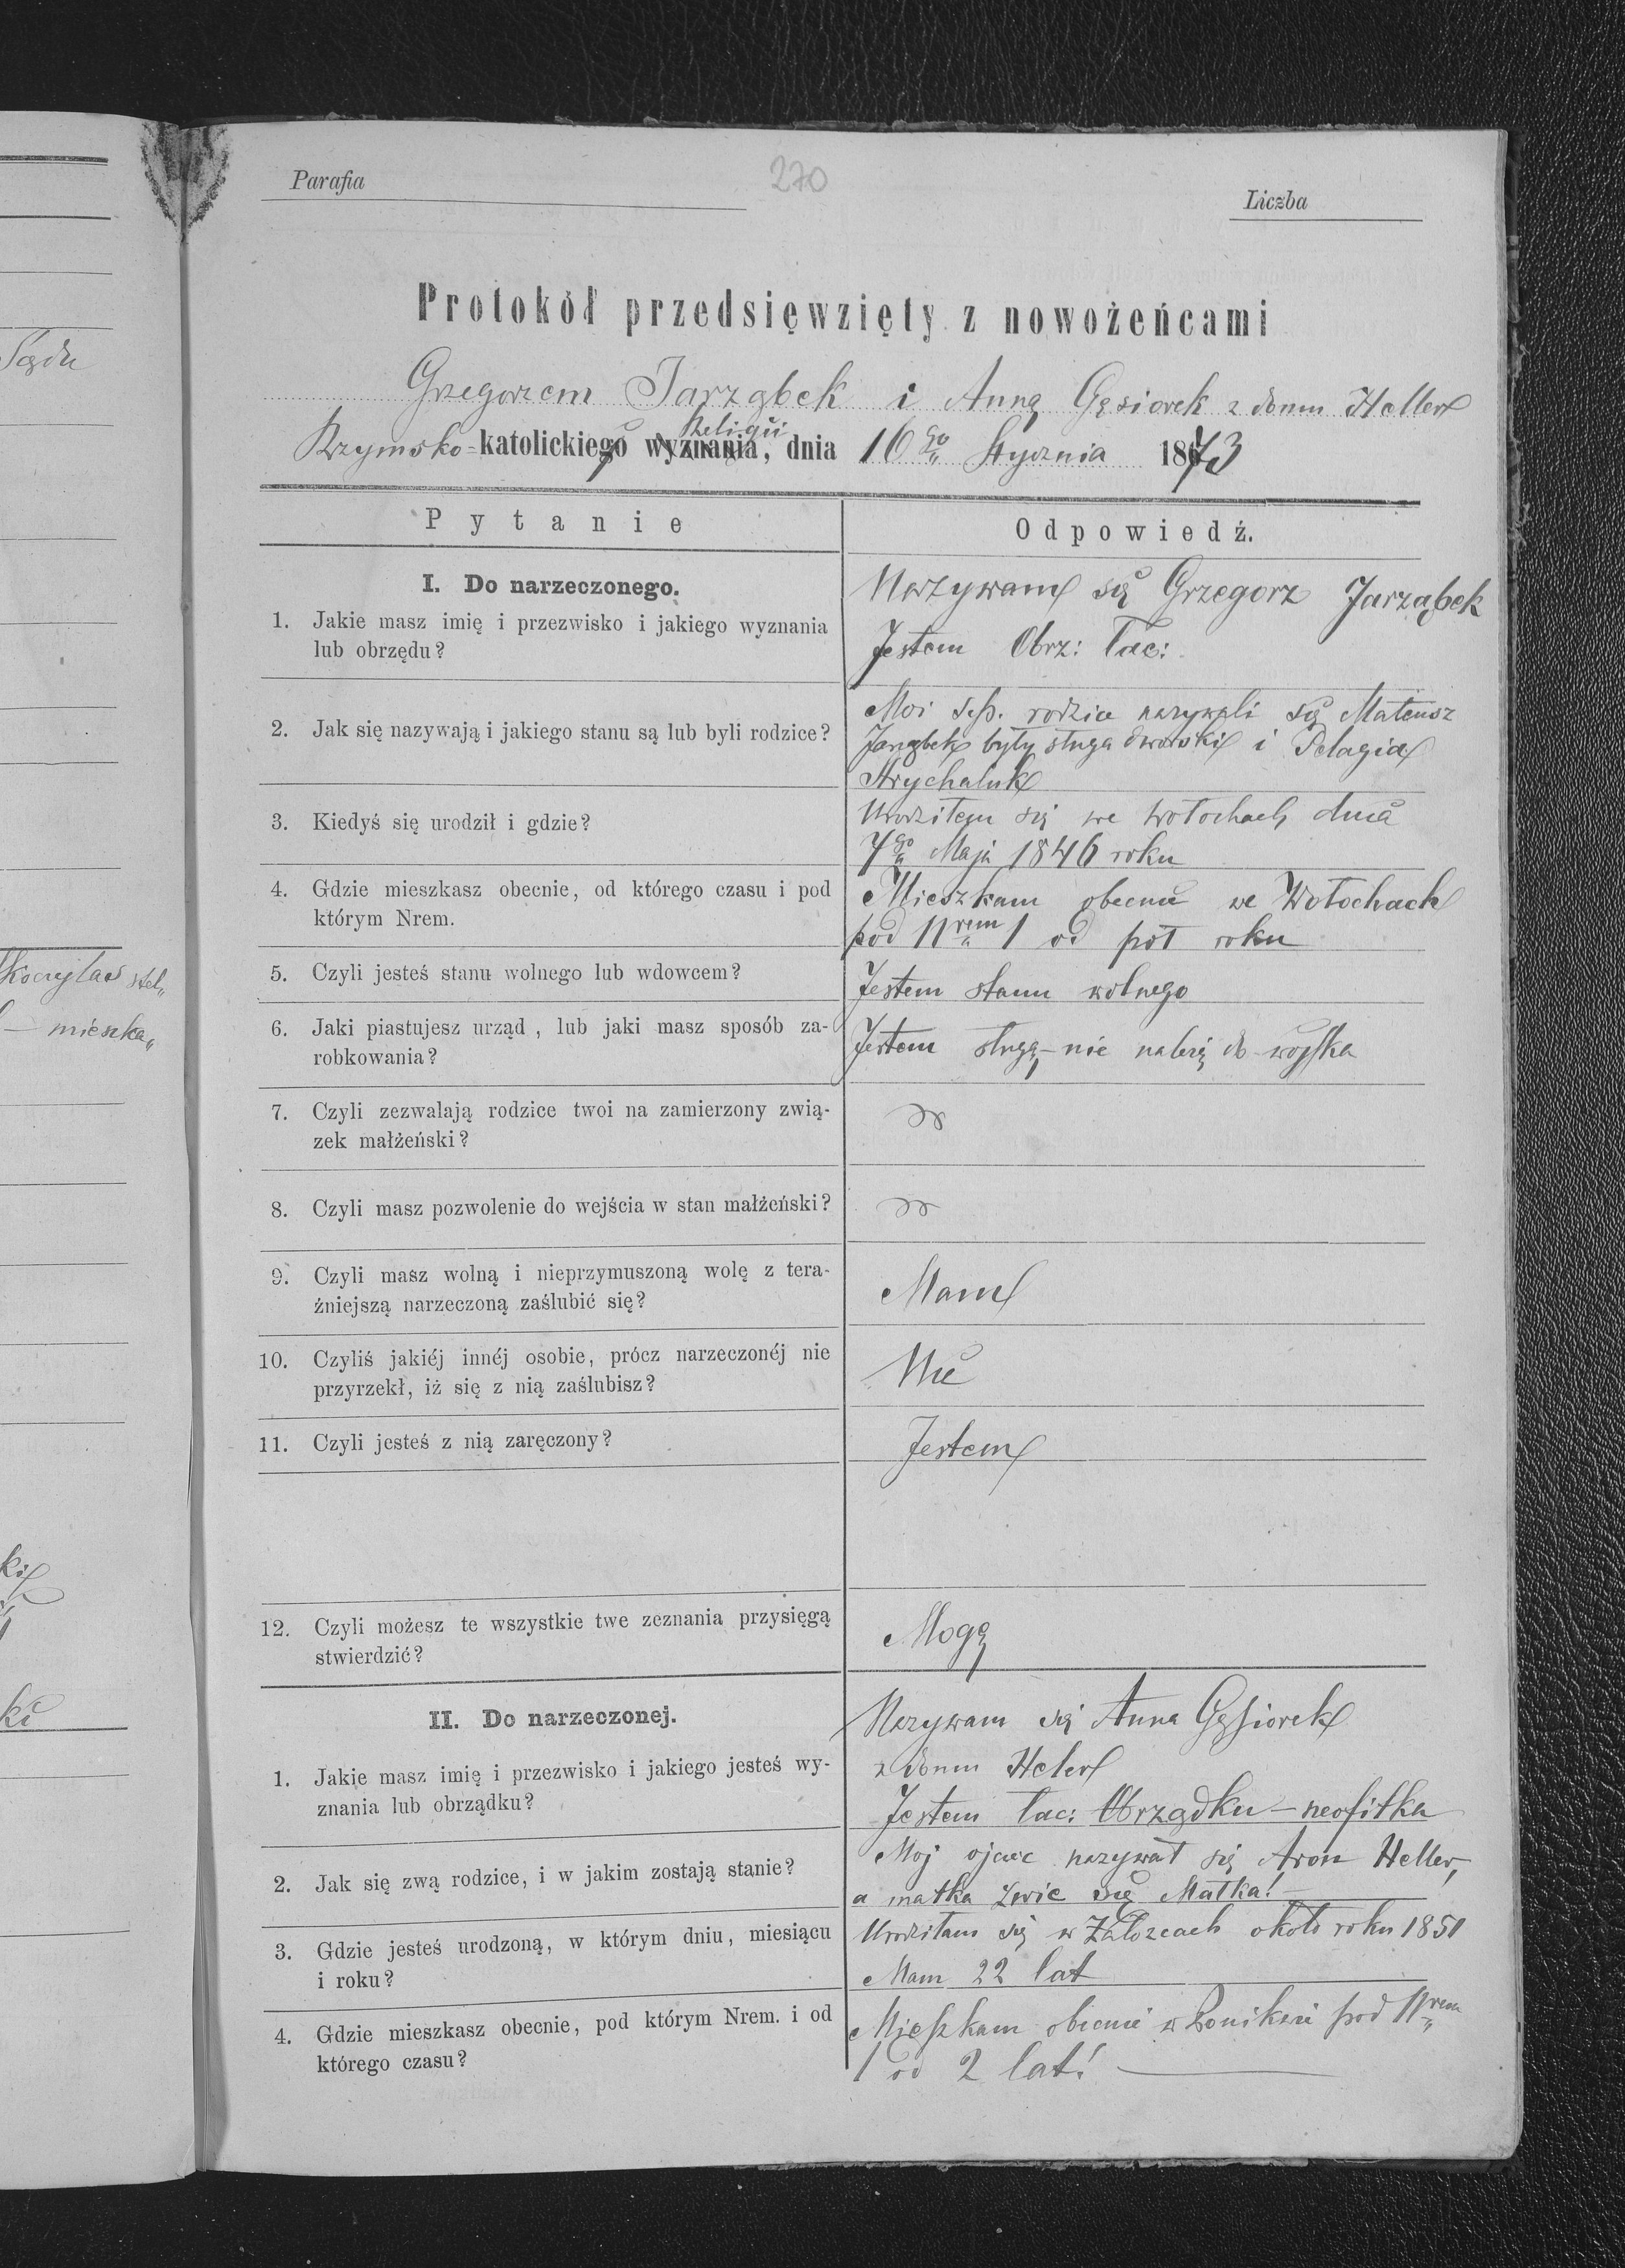 Sądu
mieszka„
ki
Parafia
270
Liczba
Protokół przedsięwzięty z nowożeńcami
Grzegorzem Jarząbek i Anną Gąsiorek z domu Heller
Religii
Rzymsko-katolickiego wyznania, dnia 16go Stycznia 1873
Pytanie
Odpowiedź.
I. Do narzeczonego.
1. Jakie masz imię i przezwisko i jakiego wyznania
lub obrzędu?
Nazywam się Grzegorz Jarząbek
Jestem Obrz: łac:
2. Jak się nazywają i jakiego stanu są lub byli rodzice?
Moi ś.p. rodzice nazywali się Mateusz
Jarząbek były sługa dworski i Pelagia
Strychaluk
3. Kiedyś się urodził i gdzie?
Urodziłem się we Wołochach dnia
7go Maja 1846 roku
4. Gdzie mieszkasz obecnie, od którego czasu i pod
którym Nrem.
Mieszkam obecnie we Wołochach
pod Nrem 1 od pół roku
5. Czyli jesteś stanu wolnego lub wdowcem?
Jestem stanu wolnego
6. Jaki piastujesz urząd, lub jaki masz sposób za-
robkowania?
Jestem sługą – nie należę do wojska
7. Czyli zezwalają rodzice twoi na zamierzony zwią-
zek małżeński?
8. Czyli masz pozwolenie do wejścia w stan małżeński?
9. Czyli masz wolną i nieprzymuszoną wolę z tera-
źniejszą narzeczoną zaślubić się?
Mam
10. Czyliś jakiéj innéj osobie, prócz narzeczonéj nie
przyrzekł, iż się z nią zaślubisz?
Nie
11. Czyli jesteś z nią zaręczony?
Jestem
12. Czyli możesz te wszystkie twe zeznania przysięgą
stwierdzić?
Mogę
II. Do narzeczonej.
1. Jakie masz imię i przezwisko i jakiego jesteś wy-
znania lub obrządku?
Nazywam się Anna Gąsiorek
z domu Heler
Jestem łac: Obrządku – neofitka
2. Jak się zwą rodzice, i w jakim zostają stanie?
Moj ojciec nazywał się Aron Heller,
a matka zwie się Małka! –
3. Gdzie jesteś urodzoną, w którym dniu, miesiącu
i roku?
Urodziłam się w Załozcach około roku 1851
Mam 22 lat
4. Gdzie mieszkasz obecnie, pod którym Nrem. i od
którego czasu?
Mieszkam obecnie w Ponikwi pod Nrem
1 od 2 lat!